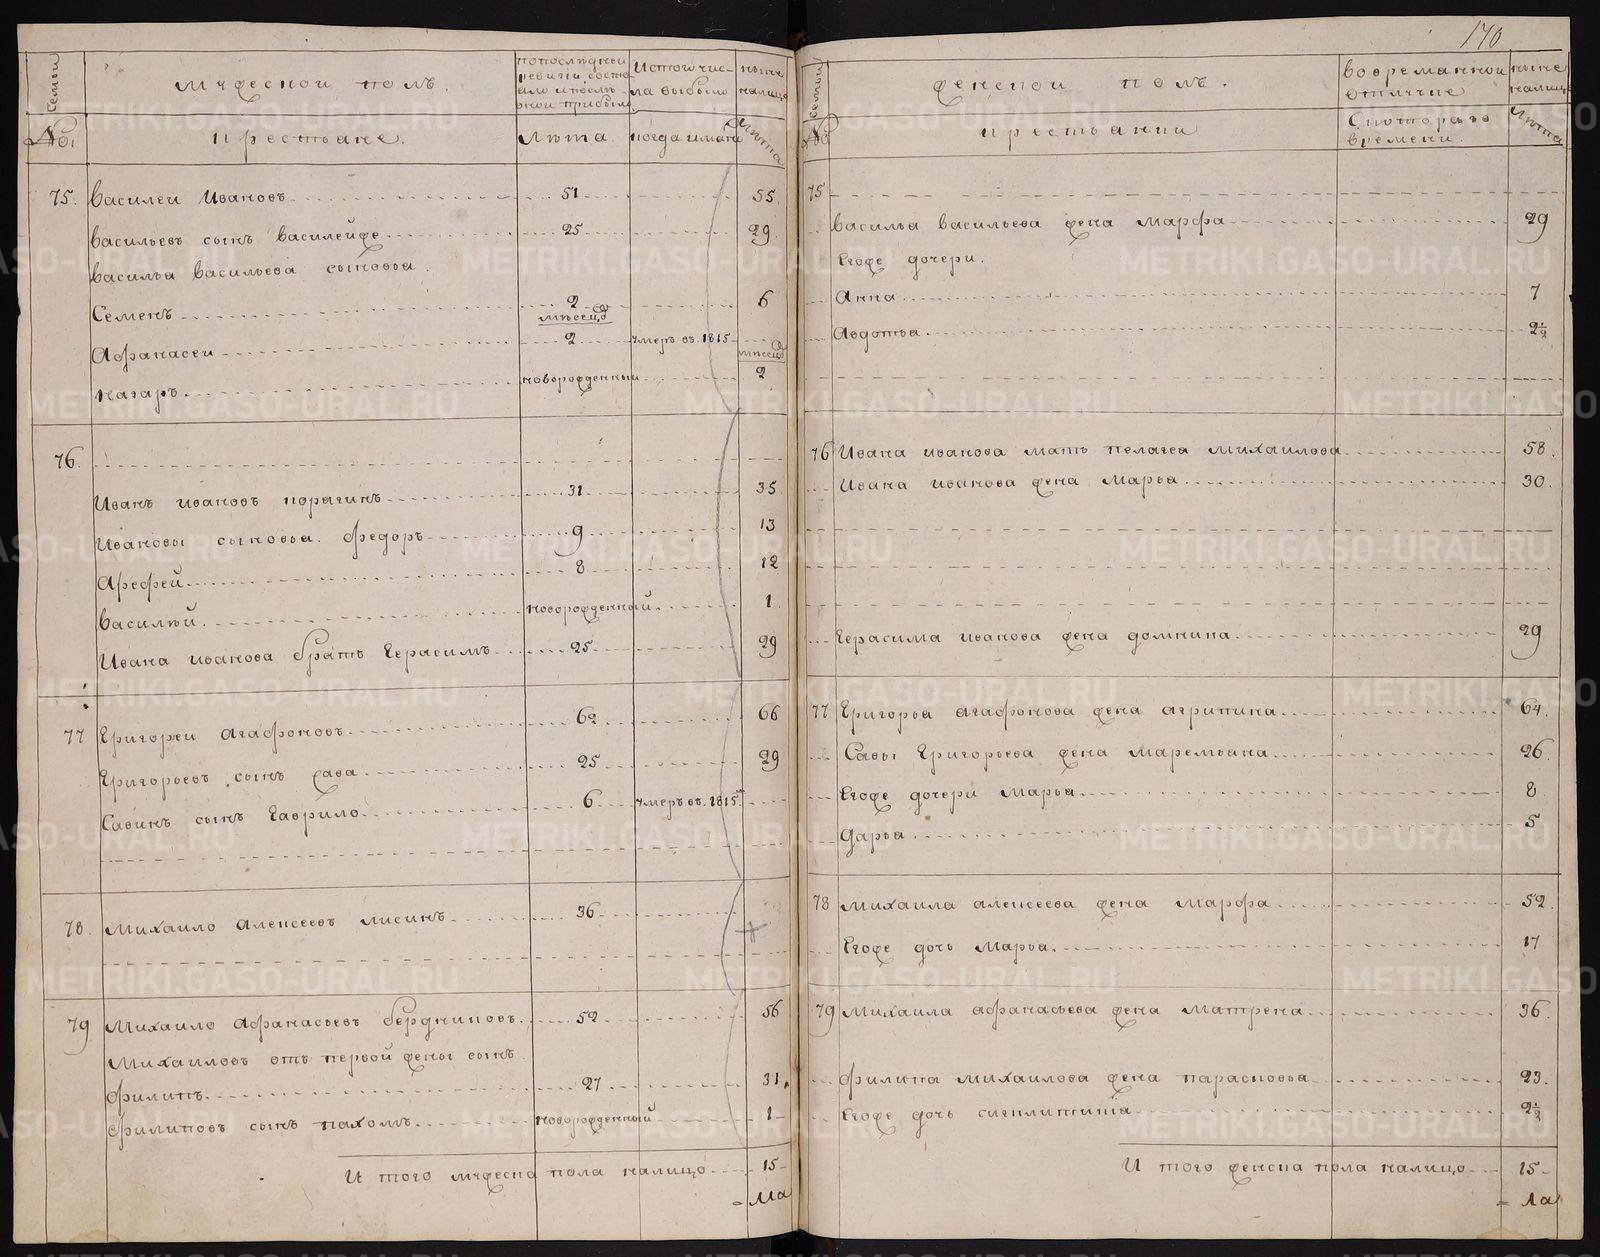 170
Семьи
мужеской полъ.
попоследней ревизіи состояло ипослѣ оной прибыло
Изтого числа выбыло
ныне налицо
№:
крестьяне.
лѣта.
когда имянно
лѣта
75. Василеи Ивановъ 51 55.
Васильевъ сынъ Василейже 25 29.
Василья Васильева сыновья.
Семенъ 2 6
месецо
Афанасеи 2 умеръ въ. 1815
месецо
Назаръ новорожденныи 2
76.
Иванъ ивановъ порягинъ 31 35
Ивановы сыновья. Федоръ 9 13
Арефей 8 12
Василѣй новорожденный 1
Ивана иванова братъ Герасимъ 25 29
77 Григореи Агафоновъ 62 66
Григорьевъ сынъ сава 25 29
Савинъ сынъ Гаврило 6 умеръ въ. 1815
78. Михаило Алексеевъ лисинъ 36
79 Михаило Афанасьевъ бердниковъ 52 56
Михаиловъ отъ первой жены сынъ
филипъ 27 31.
филиповъ сынъ пахомъ новорожденный 1
И того мужеска пола налицо 15
Семьи
женской полъ.
вовременной отлучке
ныне налицо
№
крестьянки
Скотораго времени.
лѣта
75
Василья Васильева жена марфа 29
Егоже дочери.
Анна 7
Авдотья 2½
76 Ивана иванова мать пелагея михаилова 58.
Ивана иванова жена марья 30.
Герасима иванова жена домнина 29
77 Григорья агафонова жена агрипина 64.
Савы Григорьева жена маремьяна 26
Егоже дочери марья 8
Дарья 5
78 михаила алексеева жена марфа 52.
Егоже дочь марья. 17
79 михаила афанасьева жена матрена 36.
филипа михаилова жена парасковья 23.
Егоже дочь 2½
И того женска пола налицо 15